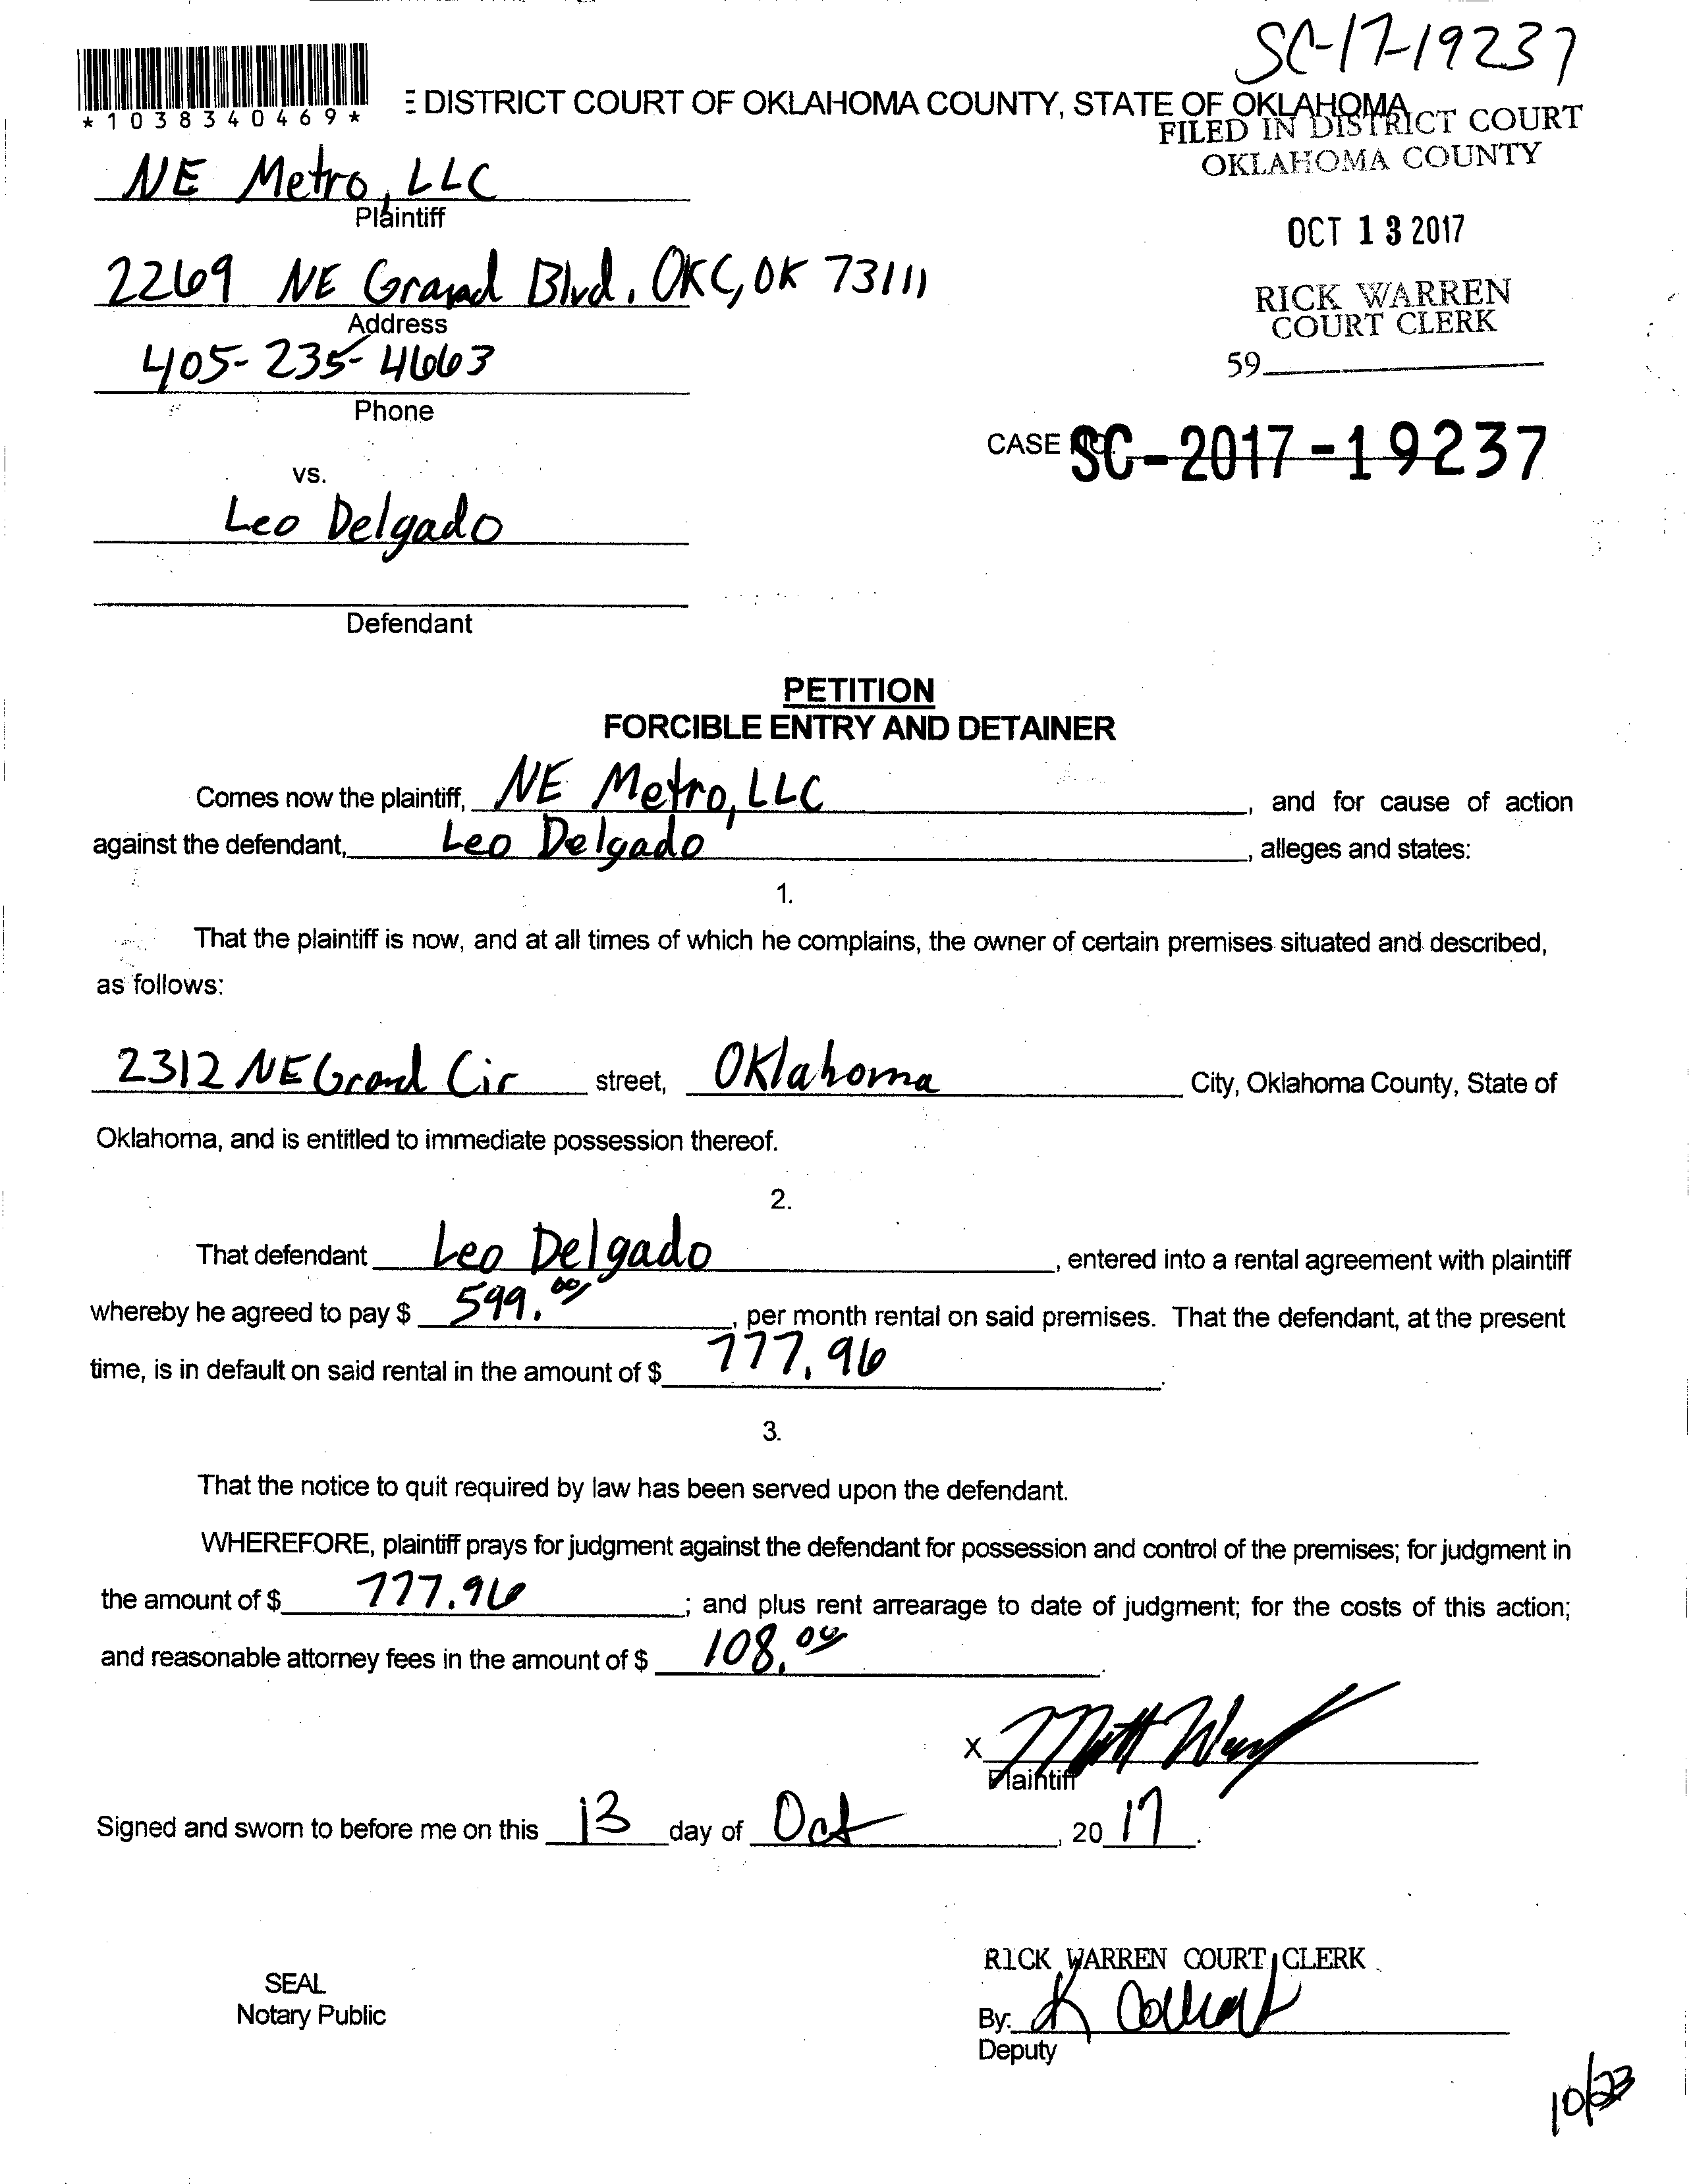 SC-17-19237
*1038340469*
E DISTRICT COURT OF OKLAHOMA COUNTY, STATE OF OKLAHOMA
FILED IN DISTRICT COURT
OKLAHOMA COUNTY
NE Metro, LLC
Plaintiff
OCT 13 2017
2269 NE Grand Blvd. OKC, OK 73111
Address
RICK WARREN
COURT CLERK
405-235-4663
Phone
59
CASE NO. SC-2017-19237
vs.
Leo Delgado
Defendant
PETITION
FORCIBLE ENTRY AND DETAINER
Comes now the plaintiff, NE Metro, LLC, and for cause of action
against the defendant, Leo Delgado, alleges and states:
1.
That the plaintiff is now, and at all times of which he complains, the owner of certain premises situated and described,
as follows:
2312 NE Grand Cir street, Oklahoma City, Oklahoma County, State of
Oklahoma, and is entitled to immediate possession thereof.
2.
That defendant Leo Delgado, entered into a rental agreement with plaintiff
whereby he agreed to pay $ 599.00, per month rental on said premises. That the defendant, at the present
time, is in default on said rental in the amount of $ 777.96.
3.
That the notice to quit required by law has been served upon the defendant.
WHEREFORE, plaintiff prays for judgment against the defendant for possession and control of the premises; for judgment in
the amount of $ 777.96; and plus rent arrearage to date of judgment; for the costs of this action;
and reasonable attorney fees in the amount of $ 108.00.
X Matt
Plaintiff
Signed and sworn to before me on this 13 day of Oct, 2017.
RICK WARREN COURT CLERK
SEAL
Notary Public
By: K
Deputy
10/23